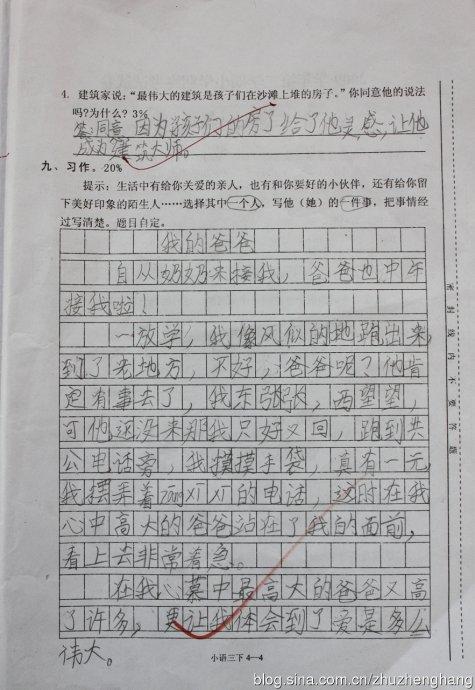 4. 建筑家说：“最伟大的建筑是孩子们在沙滩上堆的房子。”你同意他的说法
吗？为什么？3%
答：同意，因为孩子们的房子给了他灵感，让他
成为建筑大师。
九、习作。20%
提示：生活中有给你关爱的亲人，也有和你要好的小伙伴，还有给你留
下美好印象的陌生人……选择其中一个人，写他（她）的一件事，把事情经
过写清楚。题目自定。
我的爸爸
自从奶奶来接我，爸爸也中午
接我啦！
一放学，我像风似的地跑出来，
到了老地方，不好，爸爸呢？他肯
定有事去了，我东张张，西望望，
可他还没来那我只好又回，跑到共
公电话旁，我摸摸手袋，真有一元，
我摆弄着 的电话，这时在我
心中高大的爸爸站在了我的面前，
看上去非常着急。
在我心幕中最高大的爸爸又高
了许多，更让我体会到了爱是多么
伟大。
小语三下 4—4
密封线内不要答题
blog.sina.com.cn/zhuzhenghang